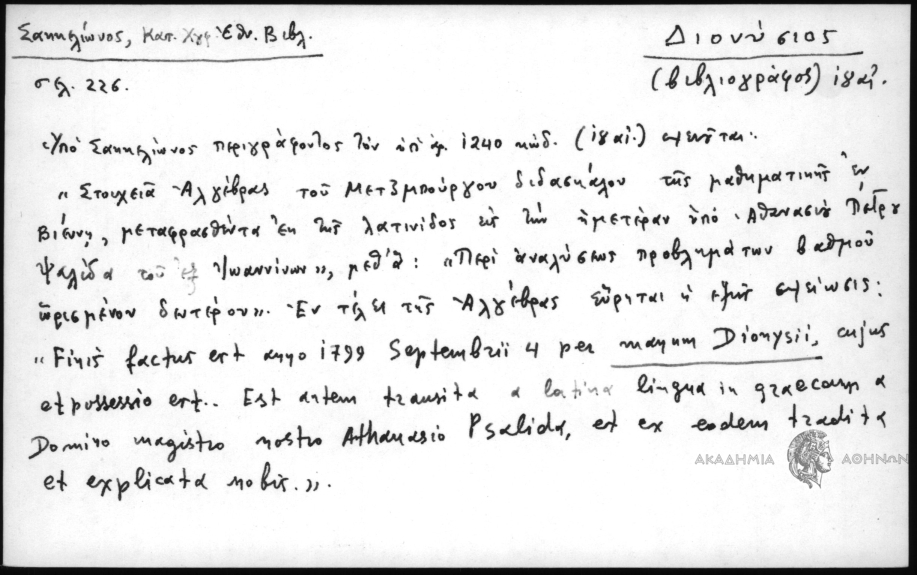 Σακκελίωνος, Κατ. Χγφ. Ἐθν. Βιβλ.
Διονύσιος
σελ. 226.
(βιβλιογράφος) ιηʹ αἰ.
Ὑπὸ Σακκελίωνος περιγράφοντος τὸν ὑπ' ἀρ. 1240 κώδ. (ιηʹ αἰ.)
"Στοιχεῖα Ἀλγέβρας τοῦ Μετζμπούργου διδασκάλου τῆς μαθηματικῆς ἐν
Βιέννῃ, μεταφρασθέντα ἐκ τῆς λατινίδος εἰς τὴν ἡμετέραν ὑπὸ Ἀθανασίου Πέτρου
Ψαλίδα τοῦ ἐξ Ἰωαννίνων», μεθ' ἃ: «Περὶ ἀναλύσεως προβλημάτων βαθμοῦ
ὡρισμένου δευτέρου». Ἐν τέλει τῆς Ἀλγέβρας εὕρηται ἡ ἑξῆς σημείωσις:
"Finis factus est anno 1799 Septembrii 4 per manum Dionysii, cujus
et possessio est.. Est autem transita a latina lingua in graecam a
Domino magistro nostro Athanasio Psalida, et ex eodem tradita
et explicata nobis.».
ΑΚΑΔΗΜΙΑ ΑΘΗΝΩΝ